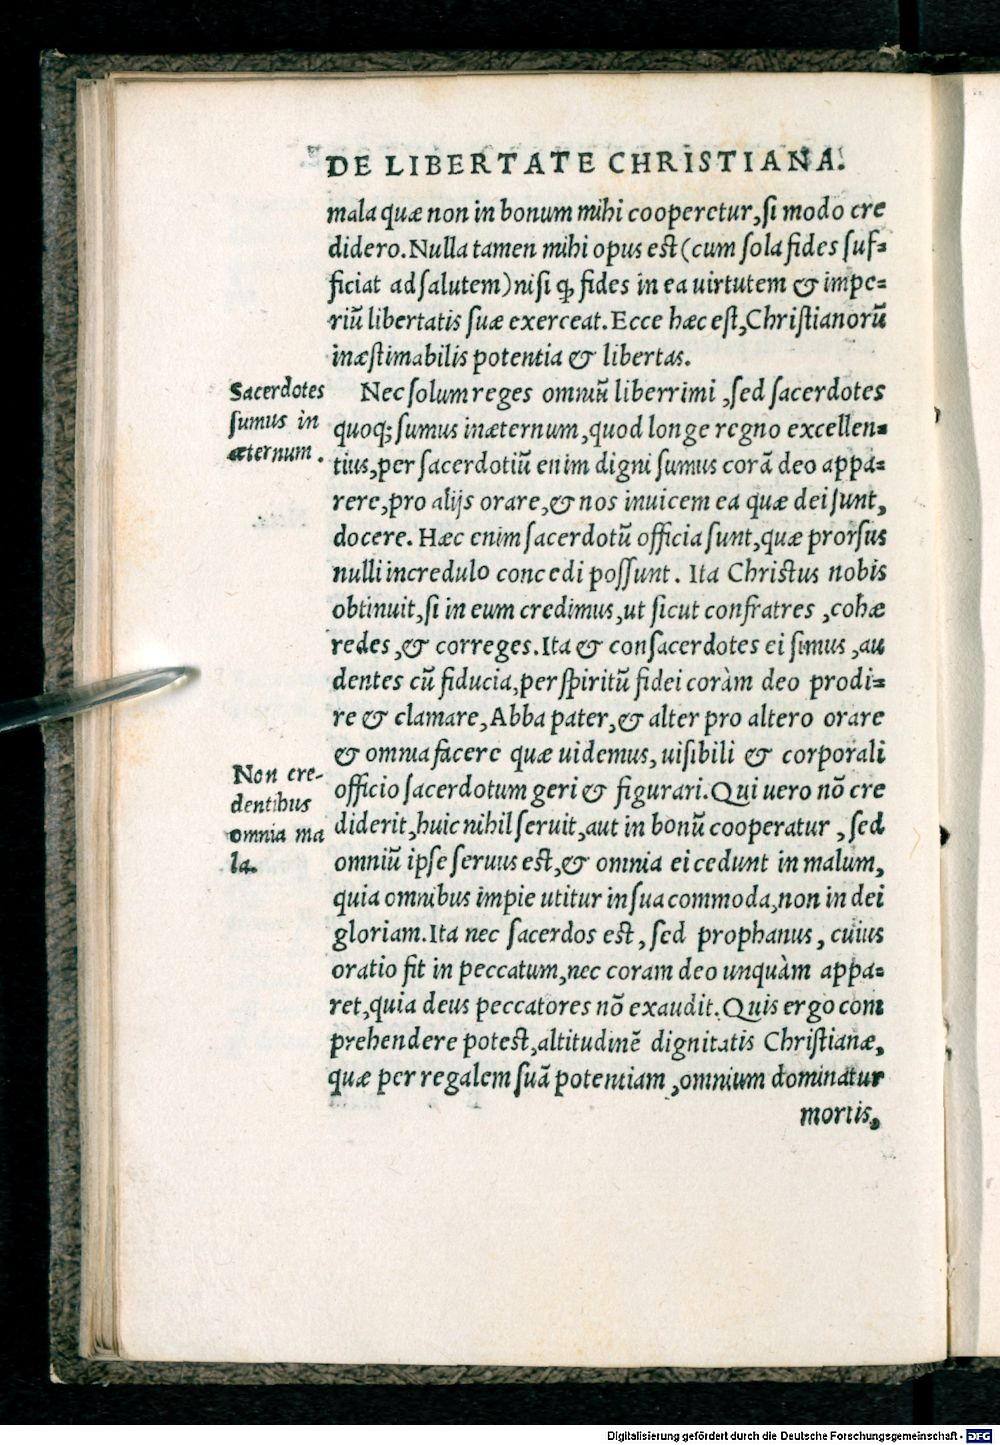 DE LIBERTATE CHRISTIANA.
mala quæ non in bonum mihi cooperetur, si modo cre
didero. Nulla tamen mihi opus est (cum sola fides suf=
ficiat ad salutem) nisi ꝙ fides in ea uirtutem & impe=
riũ libertatis suæ exerceat. Ecce hæc est, Christianorũ
inæstimabilis potentia & libertas.
Sacerdotes
sumus in
æternum.
Nec solum reges omniũ liberrimi, sed sacerdotes
quoq; sumus inæternum, quod longe regno excellen=
tius, per sacerdotiũ enim digni sumus corã deo appa=
rere, pro alijs orare, & nos inuicem ea quæ dei sunt,
docere. Hæc enim sacerdotũ officia sunt, quæ prorsus
nulli incredulo concedi possunt. Ita Christus nobis
obtinuit, si in eum credimus, ut sicut confratres, cohæ
redes, & correges. Ita & consacerdotes ei simus, au
dentes cũ fiducia, per spiritũ fidei coràm deo prodi=
re & clamare, Abba pater, & alter pro altero orare
& omnia facere quæ uidemus, uisibili & corporali
officio sacerdotum geri & figurari. Qui uero nõ cre
diderit, huic nihil seruit, aut in bonũ cooperatur, sed
omniũ ipse seruus est, & omnia ei cedunt in malum,
quia omnibus impie utitur in sua commoda, non in dei
gloriam. Ita nec sacerdos est, sed prophanus, cuius
oratio fit in peccatum, nec coram deo unquàm appa=
ret, quia deus peccatores nõ exaudit. Quis ergo com
prehendere potest, altitudinẽ dignitatis Christianæ,
quæ per regalem suã potentiam, omnium dominatur
mortis,
Non cre-
dentibus
omnia ma
la.
Digitalisierung gefördert durch die Deutsche Forschungsgemeinschaft - DFG